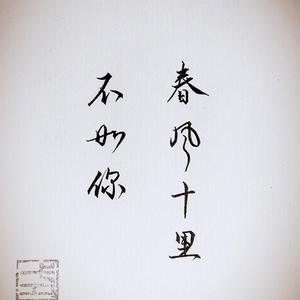 春风十里
不如你